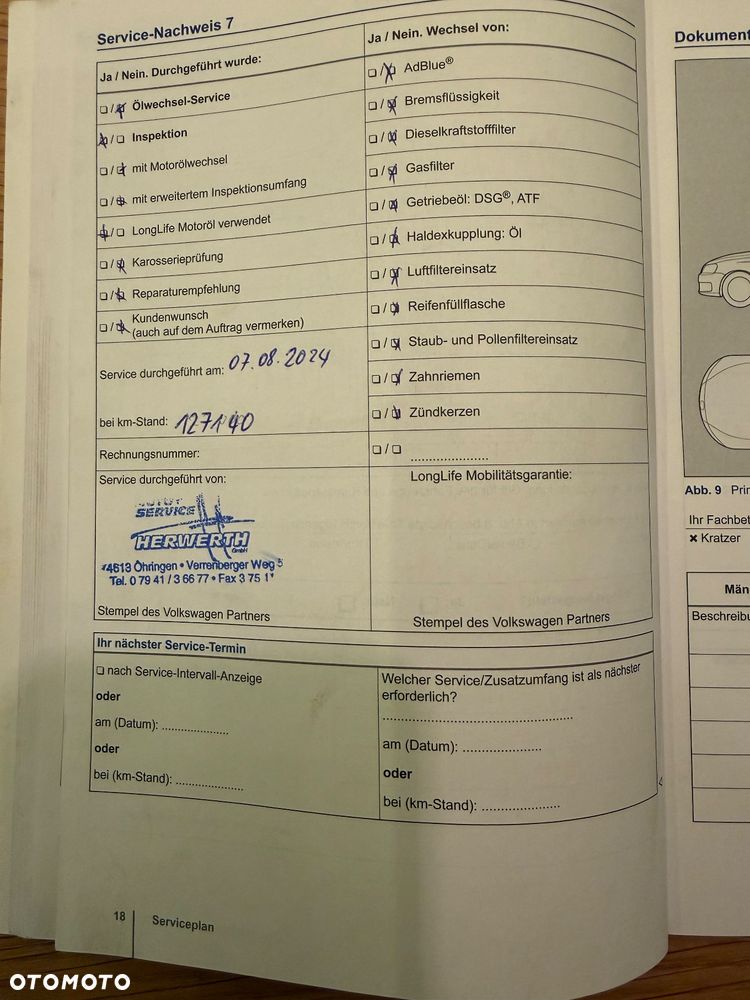 Service-Nachweis 7
Ja / Nein. Durchgeführt wurde:
❏ / ❏ Ölwechsel-Service
❏ / ❏ Inspektion
❏ / ❏ mit Motorölwechsel
❏ / ❏ mit erweitertem Inspektionsumfang
❏ / ❏ LongLife Motoröl verwendet
❏ / ❏ Karosserieprüfung
❏ / ❏ Reparaturempfehlung
❏ / ❏ Kundenwunsch
(auch auf dem Auftrag vermerken)
Service durchgeführt am: 07.08.2024
bei km-Stand: 127140
Rechnungsnummer:
Service durchgeführt von:
SERVICE
HERWERTH
GmbH
74613 Öhringen • Verrenberger Weg 5
Tel. 0 79 41 / 3 66 77 • Fax 3 75 1
Stempel des Volkswagen Partners
Ja / Nein. Wechsel von:
❏ / ❏ AdBlue®
❏ / ❏ Bremsflüssigkeit
❏ / ❏ Dieselkraftstofffilter
❏ / ❏ Gasfilter
❏ / ❏ Getriebeöl: DSG®, ATF
❏ / ❏ Haldexkupplung: Öl
❏ / ❏ Luftfiltereinsatz
❏ / ❏ Reifenfüllflasche
❏ / ❏ Staub- und Pollenfiltereinsatz
❏ / ❏ Zahnriemen
❏ / ❏ Zündkerzen
❏ / ❏ ......................
LongLife Mobilitätsgarantie:
Stempel des Volkswagen Partners
Ihr nächster Service-Termin
❏ nach Service-Intervall-Anzeige
oder
am (Datum): ...................
oder
bei (km-Stand): ...................
Welcher Service/Zusatzumfang ist als nächster
erforderlich?
......................................................
am (Datum): ......................
oder
bei (km-Stand): ......................
18 Serviceplan
Dokument
Abb. 9 Prin
Ihr Fachbet
✖ Kratzer
Män
Beschreibu
OTOMOTO